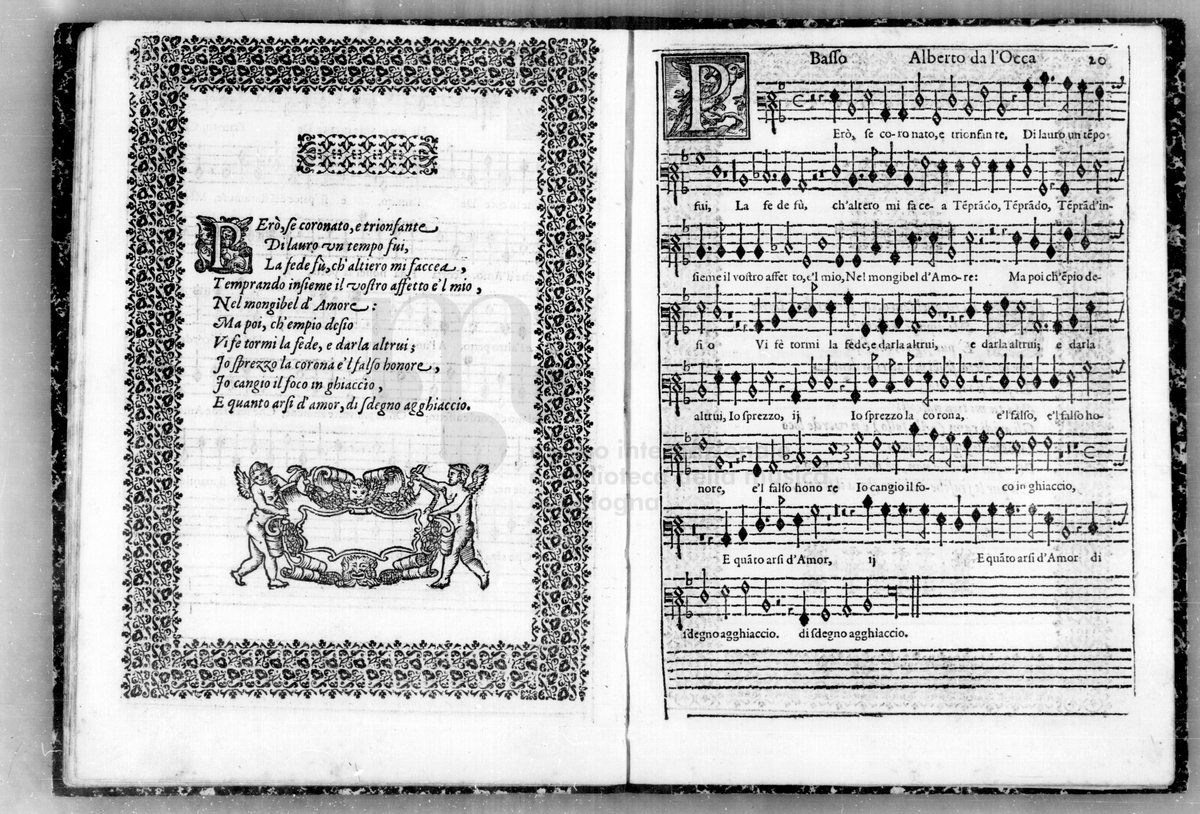 PErò, se coronato, e trionfante
Di lauro vn tempo fui,
La fede fù, ch'altiero mi faccea,
Temprando insieme il vostro affetto e'l mio,
Nel mongibel d'Amore:
Ma poi, ch'empio desio
Vi fè tormi la fede, e darla altrui;
Io sprezzo la corona e'l falso honore,
Io cangio il foco in ghiaccio,
E quanto arsi d'amor, di sdegno agghiaccio.
Basso Alberto da l'Occa 20
PErò, se co-ro nato, e trionfan te, Di lauro un tẽpo
fui, La fe de fù, ch'altero mi fa ce- a Tẽprãdo, Tẽprãdo, Tẽprãd'in-
sieme il vostro affet to, e'l mio, Nel mongibel d'Amo-re: Ma poi ch'ẽpio de-
si o Vi fè tormi la fede, e darla altrui, e darla altrui; e darla
altrui, Io sprezzo, ij Io sprezzo la co rona, e'l falso, e'l falso ho-
nore, e'l falso hono re Io cangio il fo- co in ghiaccio,
E quãto arsi d'Amor, ij E quãto arsi d'Amor di
sdegno agghiaccio. di sdegno agghiaccio.